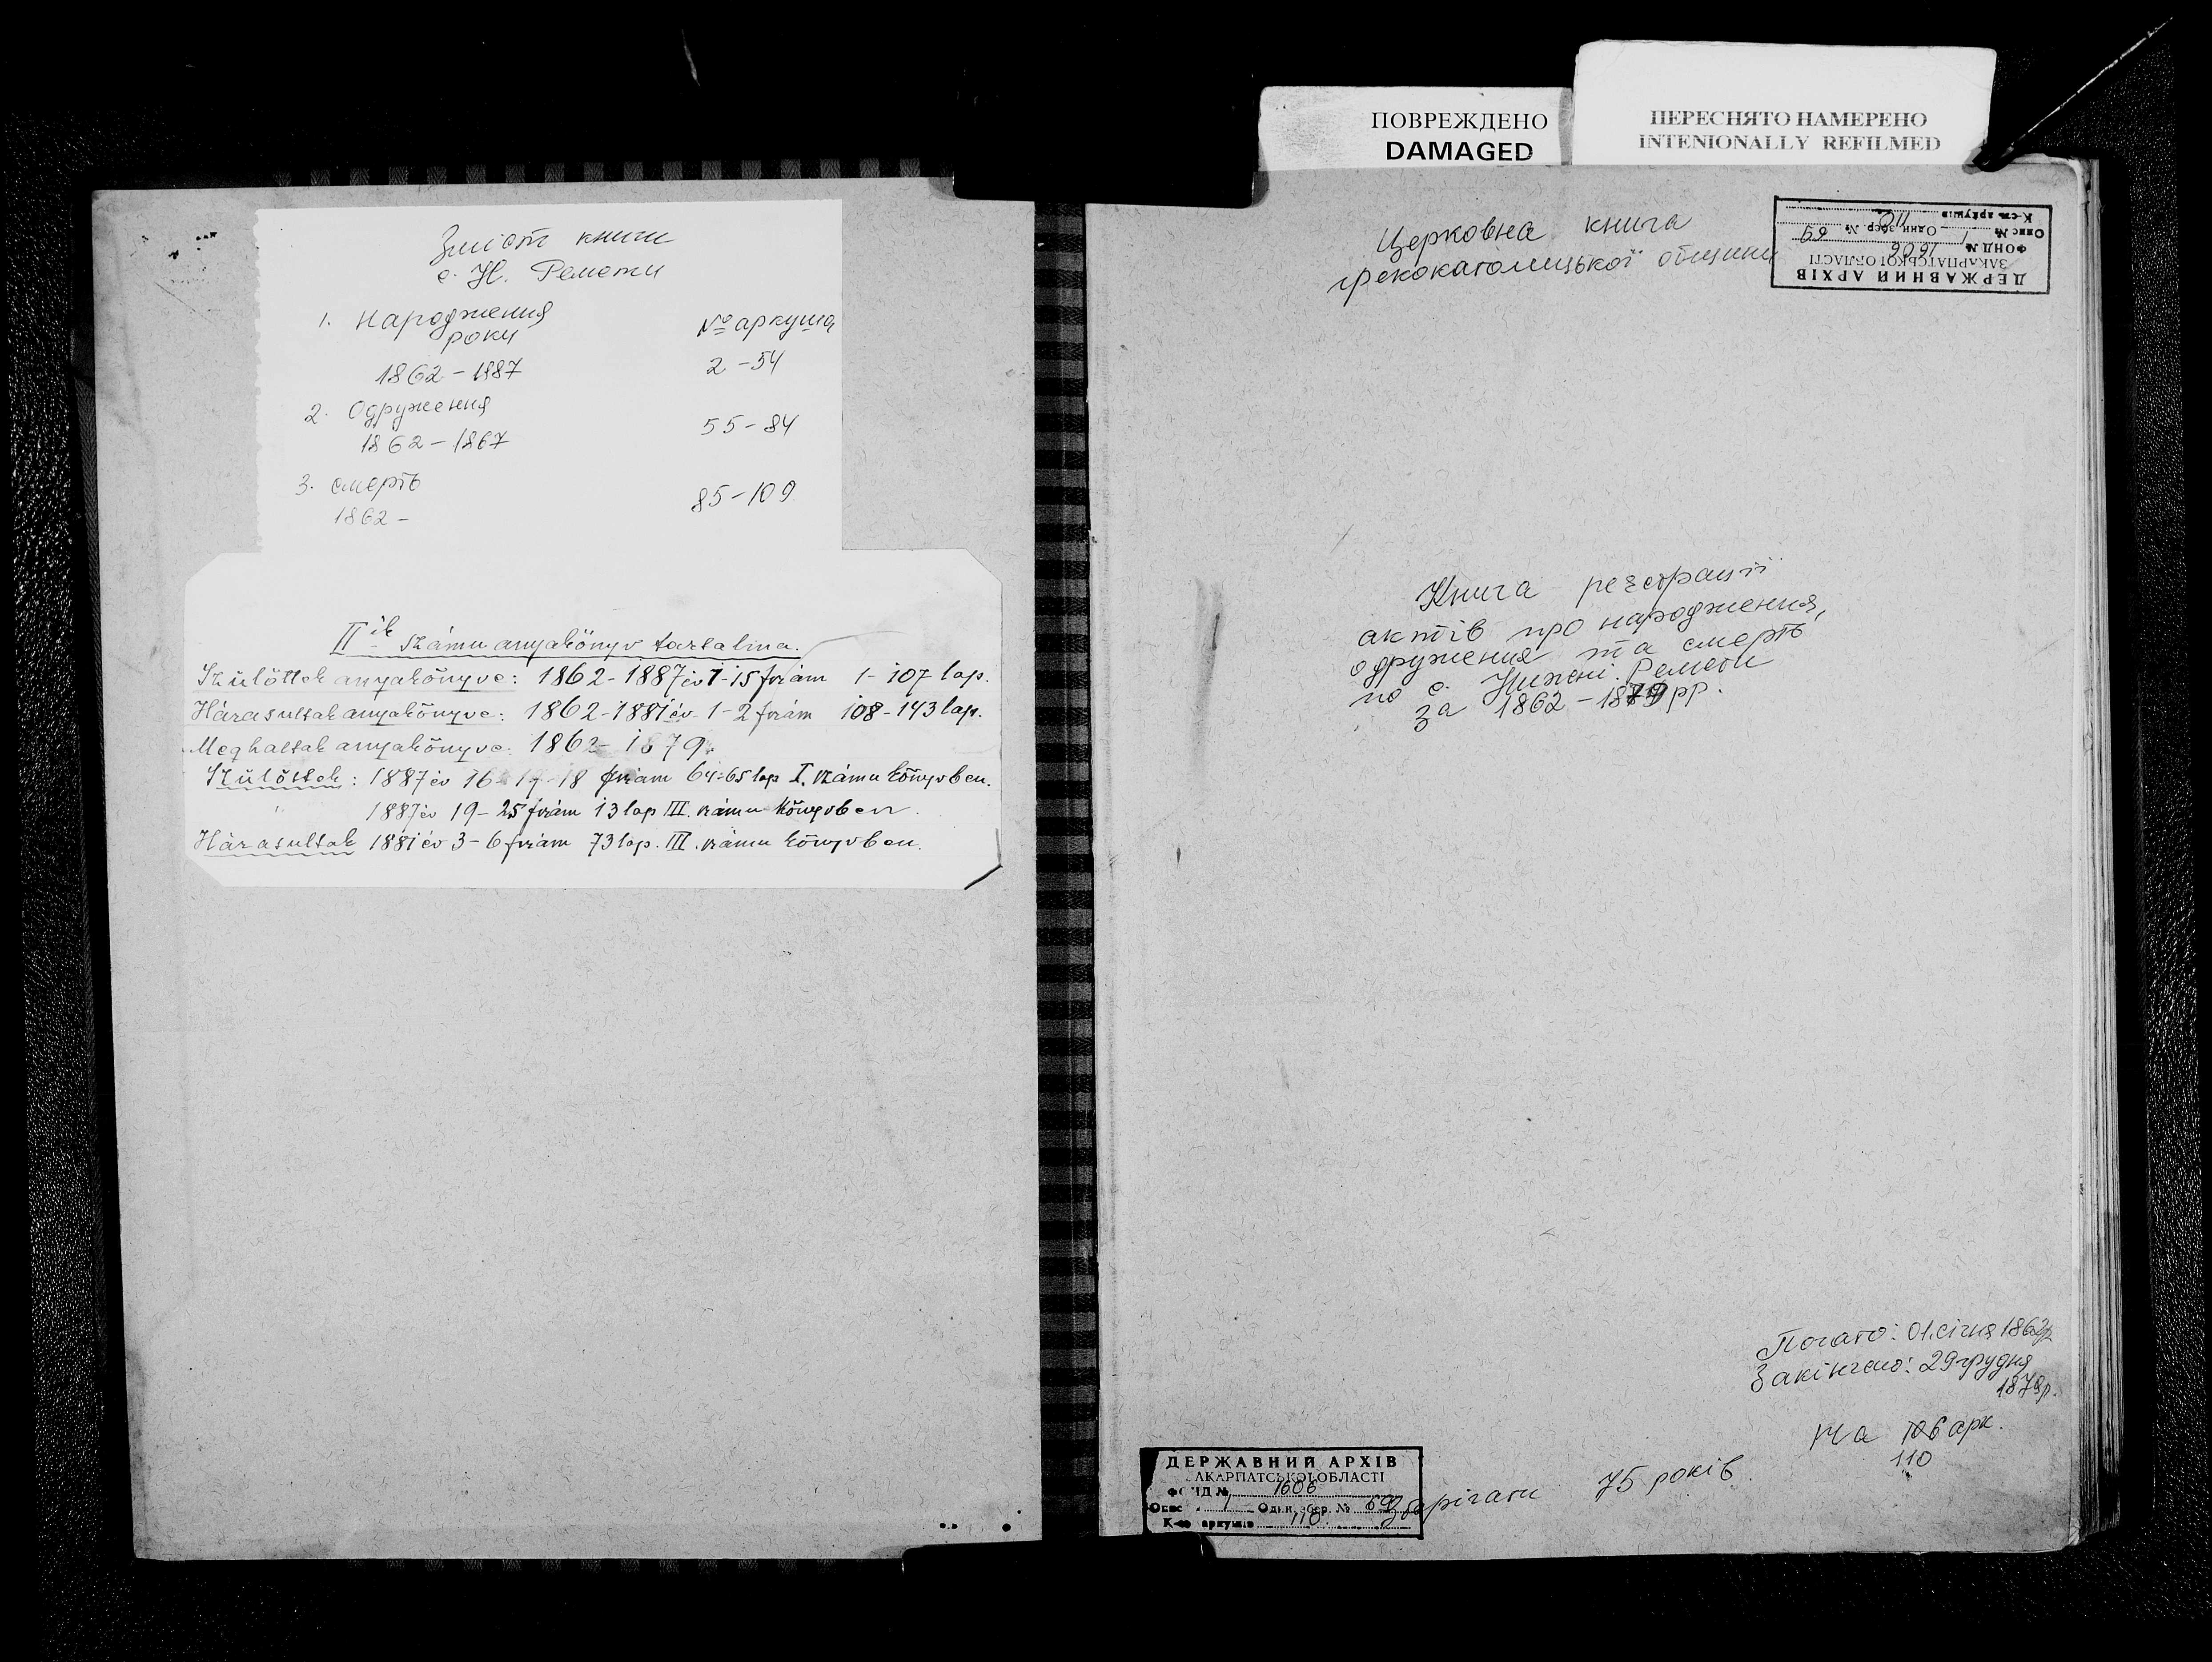 Зміст книги
с. Н. Ремети
1. Народження № аркуша
роки
1862 - 1887 2 - 54
2. Одруження
1862 - 1867 55 - 84
3. смерть
1862 - 85 - 109
II ik számu anyakönyv tartalma.
Szülöttek anyakönyve: 1862 - 1887 év 1 - 15 fszám 1 - 107 lap.
Házasultak anyakönyve: 1862 - 1881 év 1 - 2 fszám 108 - 143 lap.
Meghaltak anyakönyve: 1862 - 1879.
Szülöttek: 1887 év 16 - 17 - 18 fszám 64-65 lap I. számu könyvben.
" 1887 év 19 - 25 fszám 13 lap III. számu könyvben.
Házasultak 1881 év 3 - 6 fszám 73 lap. III. számu könyvben.
ПОВРЕЖДЕНО
DAMAGED
ПЕРЕСНЯТО НАМЕРЕНО
INTENIONALLY REFILMED
Церковна книга
грекокатолицької общини
ДЕРЖАВНИЙ АРХІВ
ЗАКАРПАТСЬКОЇ ОБЛАСТІ
ФОНД № 1606
Опис № 1 Один. збер. № 69
К-сть аркушів 110
Книга реєстрації
актів про народження,
одруження та смерть
по с. Нижні Ремети
за 1862 - 1879 рр.
Почато: 01. січня 1862р
Закінчено: 29 грудня
1879р.
На 106 арк.
110
Зберігати 75 років.
ДЕРЖАВНИЙ АРХІВ
АКАРПАТСЬКОЇ ОБЛАСТІ
ФОНД № 1606
Опис 1 Один. збер. № 69
К-сть аркушів 110